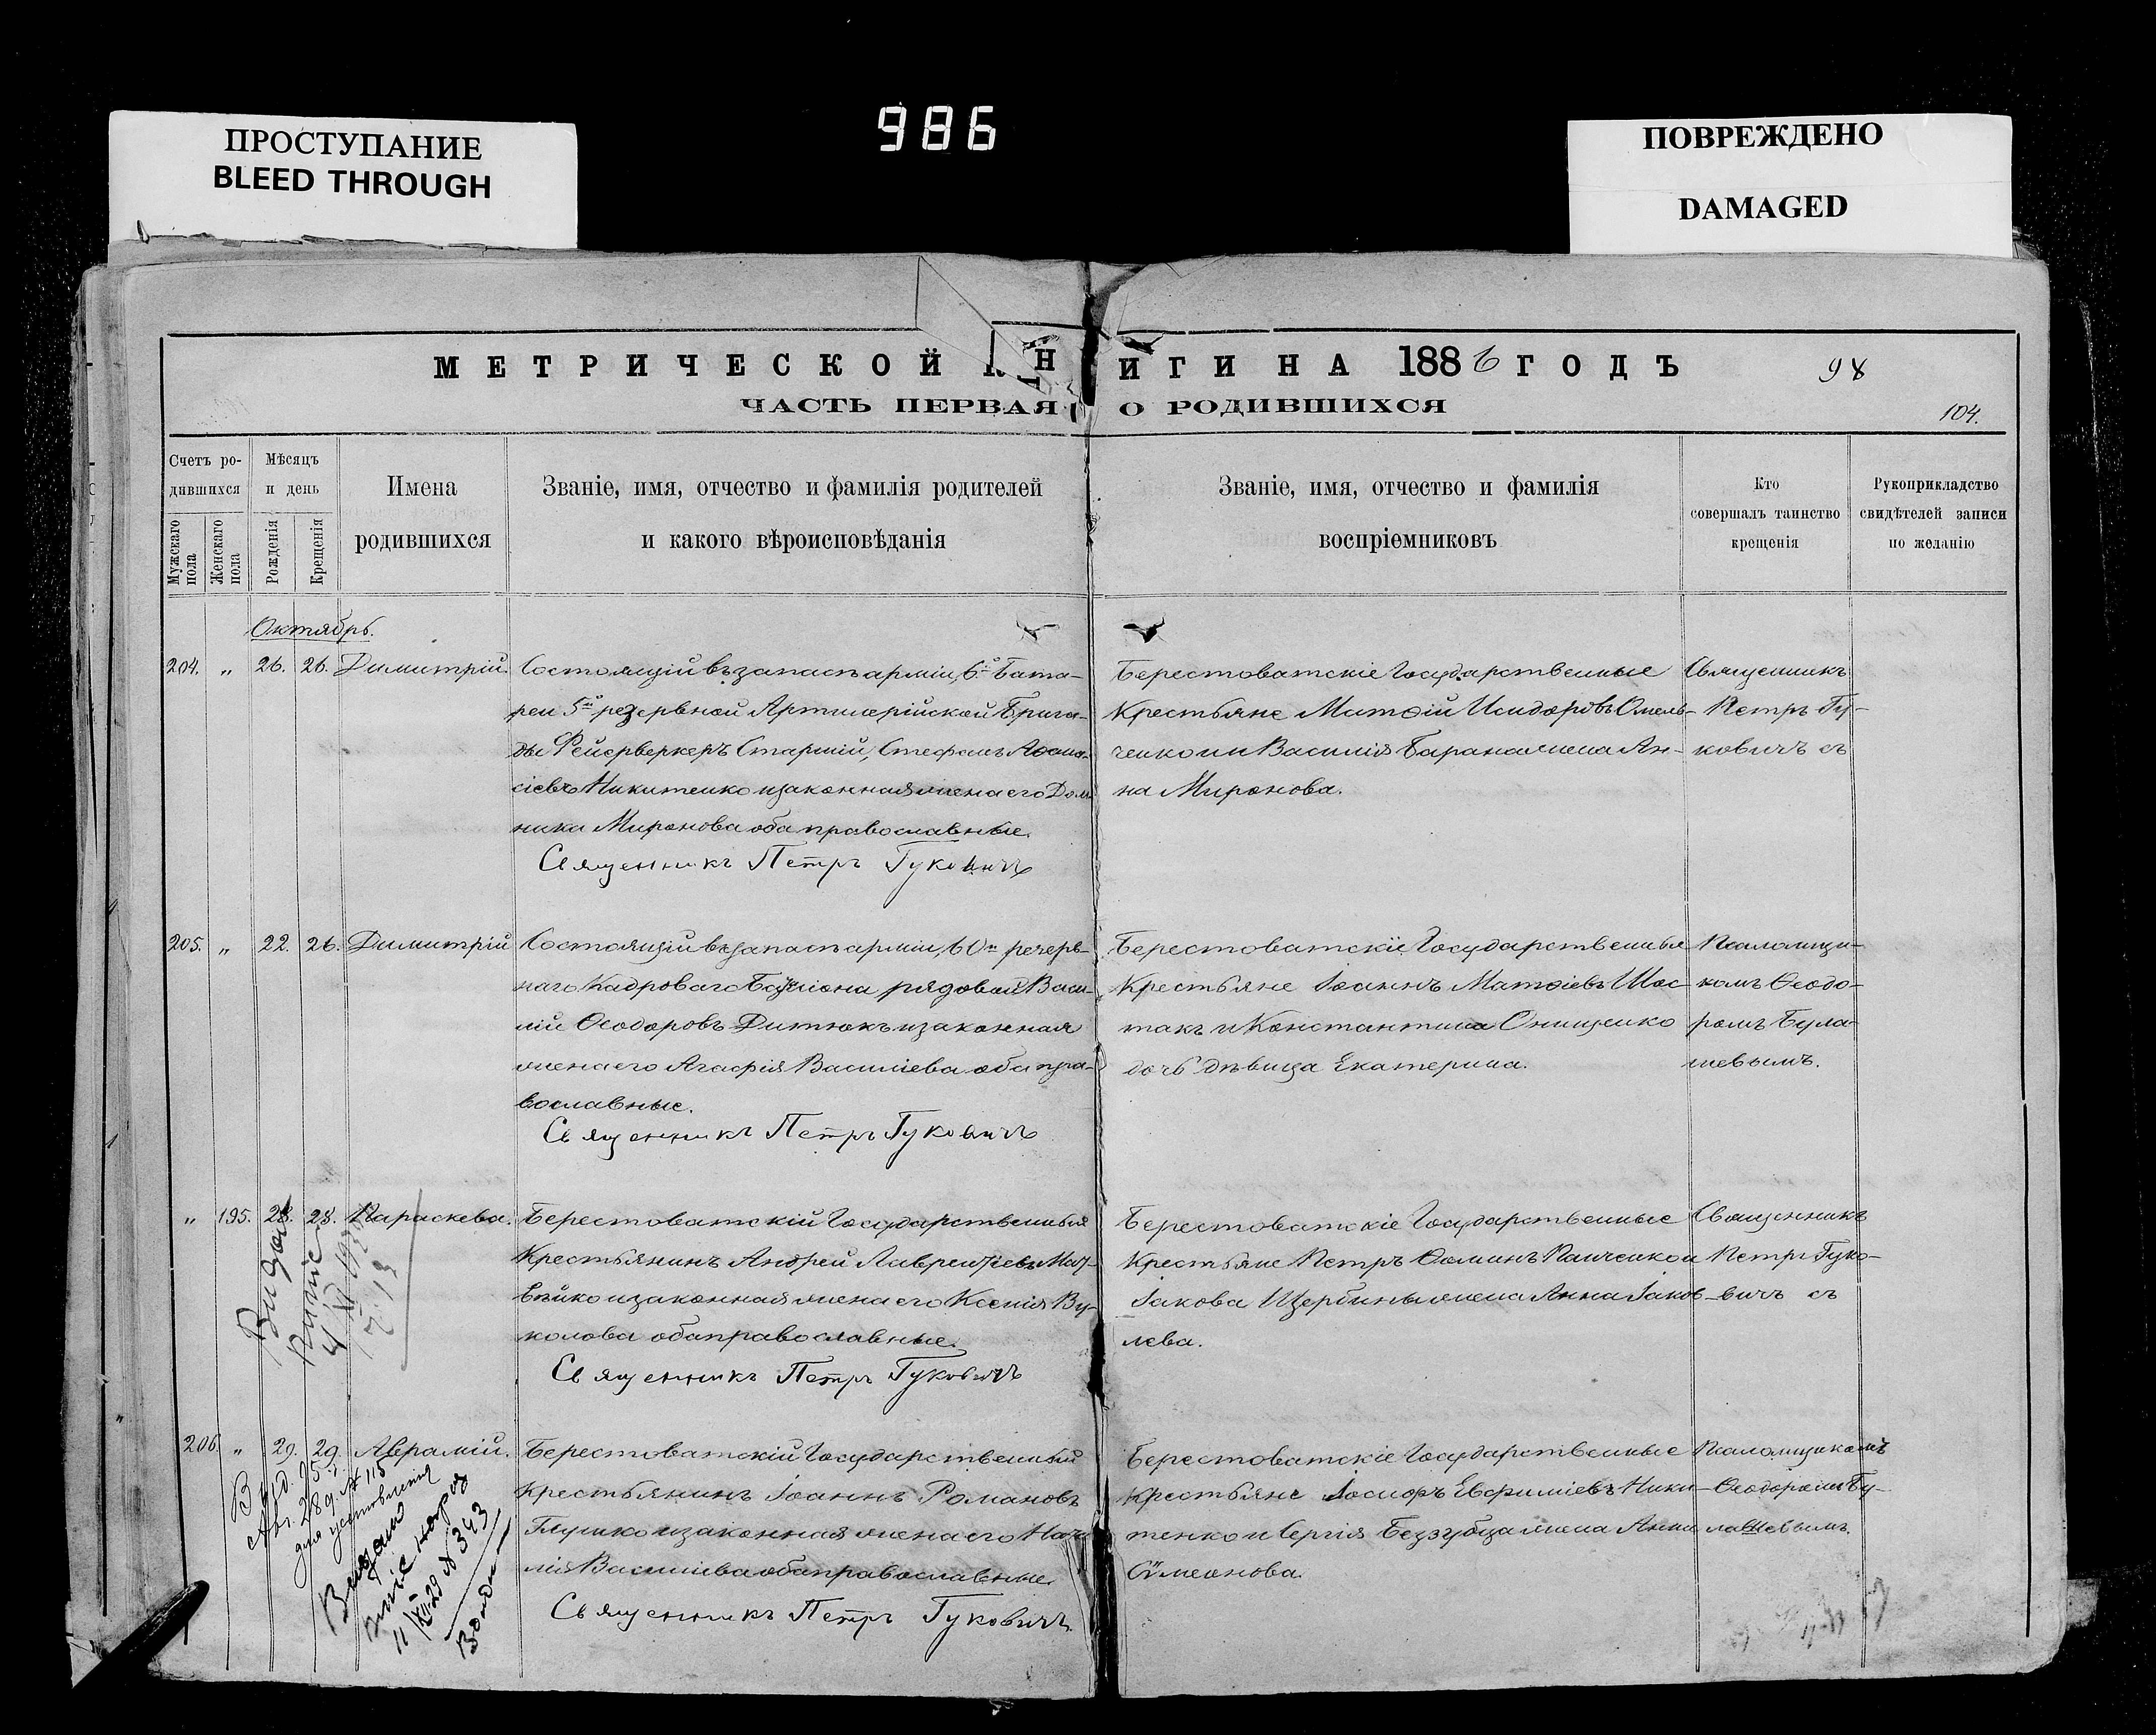 ПРОСТУПАНИЕ
BLEED THROUGH
986
ПОВРЕЖДЕНО
DAMAGED
МЕТРИЧЕСКОЙ КНИГИ НА 1886 ГОДЪ
98
ЧАСТЬ ПЕРВАЯ, О РОДИВШИХСЯ
104.
Счетъ ро-
дившихся
Мужскаго пола
Женскаго пола
Мѣсяцъ
и день
Рожденія
Крещенія
Имена
родившихся
Званіе, имя, отчество и фамилія родителей
и какого вѣроисповѣданія
Званіе, имя, отчество и фамилія
воспріемниковъ
Кто
совершалъ таинство
крещенія
Рукоприкладство
свидѣтелей записи
по желанію
Октябрь.
204. „ 26. 26. Димитрій.
Состоящій въ запасѣ арміи, 6й Бата-
реи 5й резервной Артилерійской Брига-
ды Фейерверкеръ Старшій, Стефанъ Аѳана-
сіевъ Никитенко и законная жена его Дом-
ника Миронова оба православные.
Священникъ Петръ Гуковичъ
Берестоватскіе Государственные
Крестьяне Матѳій Исидоровъ Омель-
ченко и Василія Барана жена Ан-
на Миронова.
Священникъ
Петръ Гу-
ковичъ съ
205. „ 22. 26. Димитрій
Состоящій въ запасѣ арміи, 60го резерв-
наго Кадроваго Баталіона рядовой Васи-
лій Ѳеодоровъ Дитюкъ и законная
жена его Агафія Василіева оба пра-
вославные.
Священникъ Петръ Гуковичъ
Берестоватскіе Государственные
Крестьяне Іоаннъ Матѳіевъ Шос-
такъ и Константина Онищенко
дочь дѣвица Екатерина.
Псаломщи-
комъ Ѳеодо-
ромъ Була-
шевымъ.
„ 195. 28. 28. Параскева.
Берестоватскій Государственный
Крестьянинъ Андрей Лаврентіевъ Мат-
вѣйко и законная жена его Ксенія Ву-
колова оба православные.
Священникъ Петръ Гуковичъ
Берестоватскіе Государственные
Крестьяне Петръ Ѳоминъ Панченко и
Іакова Щербины жена Анна Іаков-
лева.
Священникъ
Петръ Гуко-
вичъ съ
206. „ 29. 29. Аврамій.
Берестоватскій Государственный
Крестьянинъ Іоаннъ Романовъ
Глушко и законная жена его Ната-
лія Василіева оба православные.
Священникъ Петръ Гуковичъ.
Берестоватскіе Государственные
Крестьяне Іосифъ Евфиміевъ Ники-
тенко и Сергія Беззубца жена Анна
Симеонова.
Псаломщикомъ
Ѳеодоромъ Бу-
лашевымъ.
Видано
витяг
Видано
11/XII-29 № 343